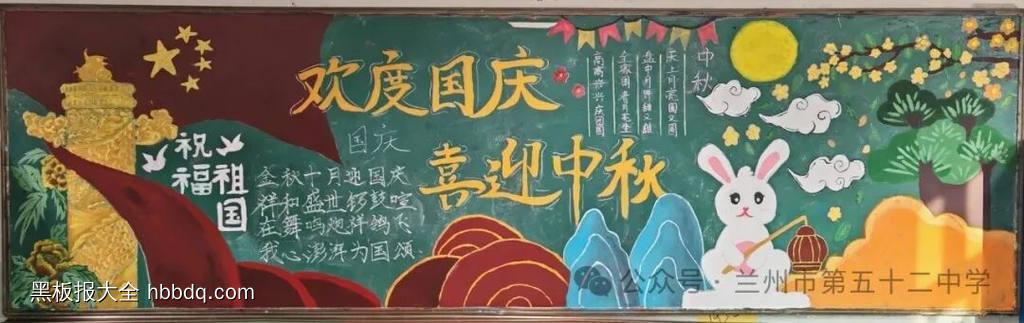 欢度国庆
喜迎中秋
祝福
祖国
国庆
金秋十月迎国庆
祥和盛世锣鼓喧
在舞鸣炮祥鸽飞
我心澎湃为国颂
中秋
天上月亮圆又圆
高高兴兴庆团圆
黑板报大全 hbbdq.com
公众号·兰州市第五十二中学